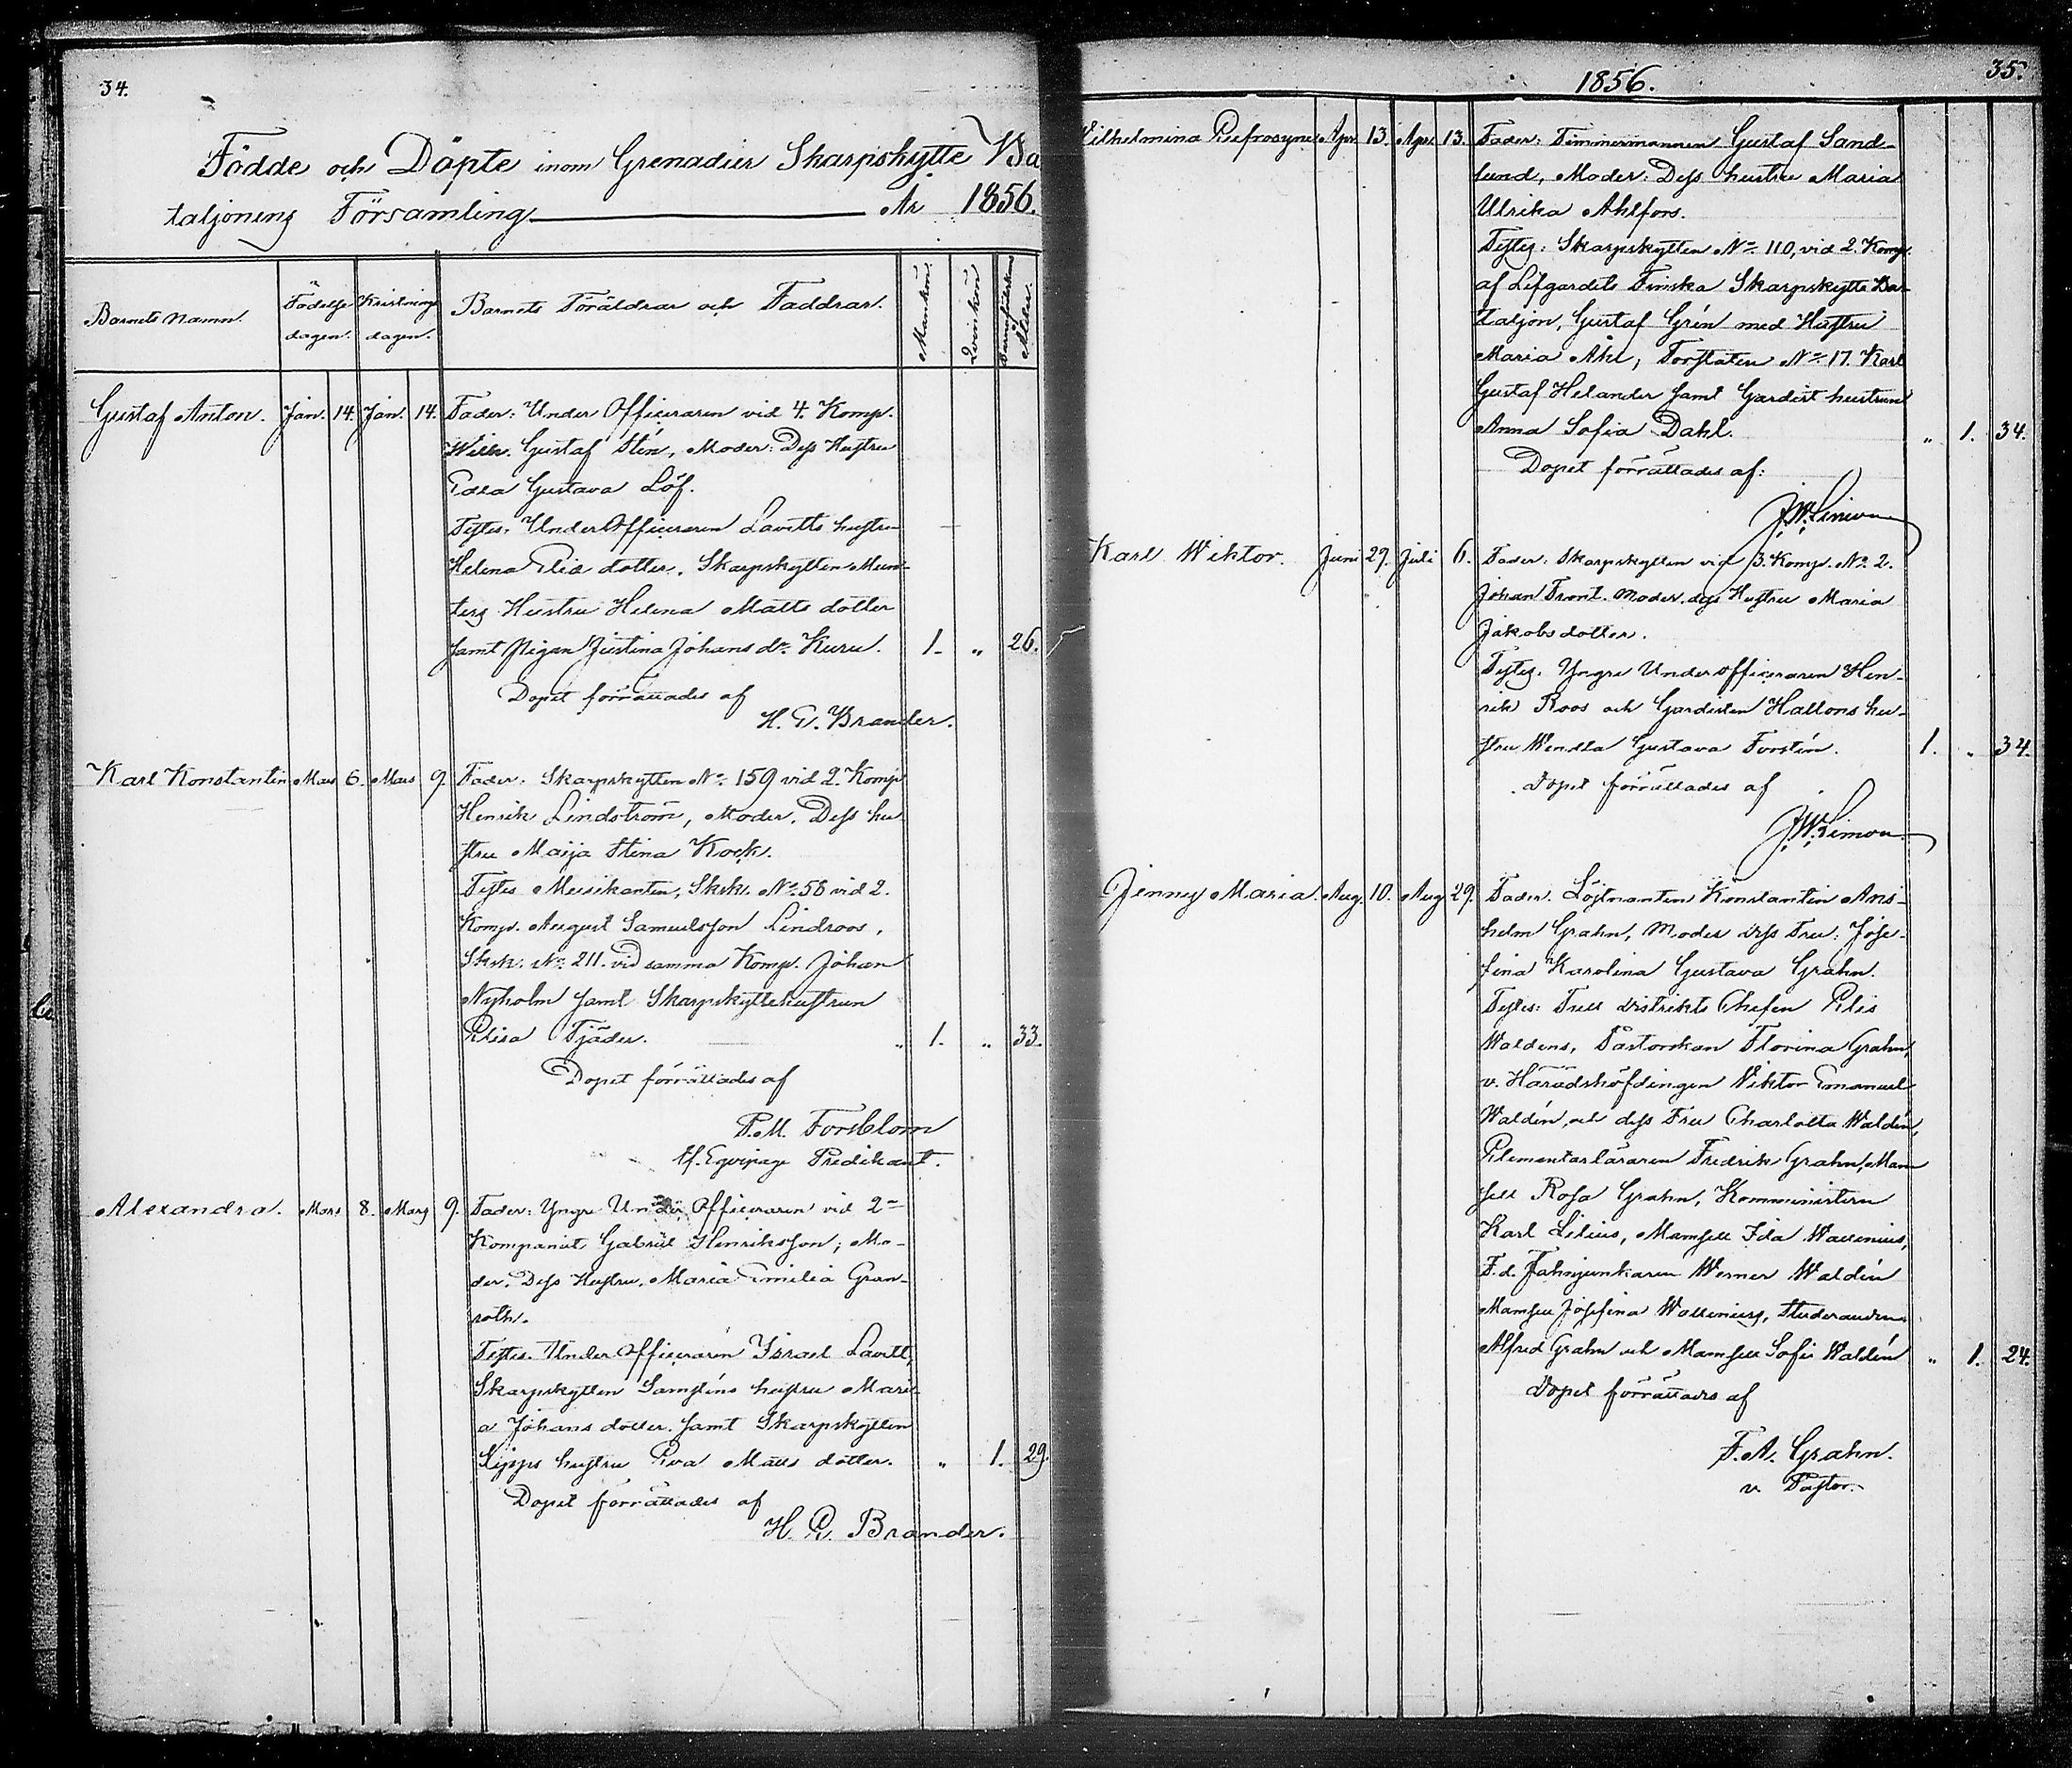 34.
Födde och Döpte inom Grenadier Skarpskytte Ba
taljonens Församling År 1856.
Barnets namn.
Födelse dagen.
Kristnings dagen.
Barnets Föräldrar och Faddrar.
Mankön.
Qvinkön
Barnaföderskans Ålder.
Gustaf Anton. Jan. 14. Jan. 14. Fader: Under Officeraren vid 4. Komp.
Wilh. Gustaf Stén, Moder: Dess Hustru
Edla Gustava Löf.
Testes: UnderOfficeraren Lavitts hustru
Helena Elia dotter. Skarpskytten Mun-
ters Hustru Helena Matts dotter
samt Pigan Justina Johans dr Kuru. 1. " 26.
Dopet förrättades af
H. E. Brander.
Karl Konstantin Mars 6. Mars 9. Fader: Skarpskytten No 159 vid 2. Komp
Henrik Lindström, Moder. Dess hu
stru Maija Stina Kock.
Testes Musikanten, Sksk. No 58 vid 2.
Komp. August Samuelsson Lindroos,
Sksk. No 211. vid samma Komp. Johan
Nyholm samt Skarpskyttehustrun
Elisa Tjäder. " 1. " 33.
Dopet förrättades af
F.M. Forsblom
tf. Equipage Predikant.
Alexandra. Mars 8. Mars 9. Fader: Yngre Under Officeraren vid 2=
Kompaniet Gabriel Henriksson; Mo-
der. Dess Hustru. Maria Emilia Gran-
roth.
Testes. Under Officeraren Israel Lavitt,
Skarpskytten Samsténs hustru Mari-
a Johans dotter. samt Skarpskytten
Sipps hustru Eva Matts dotter. " 1. 29.
Dopet förrättades af
H. E. Brander.
1856.
35.
Wilhelmina Eufrosyne Apr 13. Apr. 13. Fader: Timmermannen Gustaf Sand-
lund, Moder: Dess hustru Maria
Ulrika Ahlfors.
Testes: Skarpskytten No 110, vid 2. Komp.
af Lifgardets Finska Skarpskytte Ba-
taljon, Gustaf Grén med Hustru
Maria Åke, Torflaten No 17. Karl
Gustaf Helander samt Gardist hustrun
Anna Sofia Dahl. " 1. 34.
Dopet förrättades af:
J.W. Simon
Karl Wiktor. Juni 29. Juli 6. Fader: Skarpskytten vid 3. Komp. No 2.
Johan Front. Moder. dess Hustru Maria
Jakobsdotter.
Testes. Yngre Underofficeraren Hen-
rik Roos och Gardisten Hallons hu-
stru Wendla Gustava Forstén. 1. " 34.
Dopet förrättades af
J.W. Simon
Jenny Maria. Aug. 10. Aug 29. Fader. Löjtnanten Konstantin Ans-
helm Grahn, Moder dess Fru: Jose-
fina Karolina Gustava Grahn.
Testes: Tull distrikts Chefen Elis
Waldens, Pastorskan Florina Grahn,
v. Häradshöfdingen Viktor Emanuel
Waldén, och dess Fru Charlotta Waldén,
Elementarläraren Fredrik Grahn, Mam
sell Rosa Grahn, Kommunistern
Karl Lilius, Mamsell Ida Wallenius,
F.d. Fahnjunkaren Werner Waldén
Mamsell Josefina Wallenius, Studeranden
Alfred Grahn och Mamsell Sofie Waldén " 1. 24.
Dopet förrättades af
F. A. Grahn.
v. Pastor.